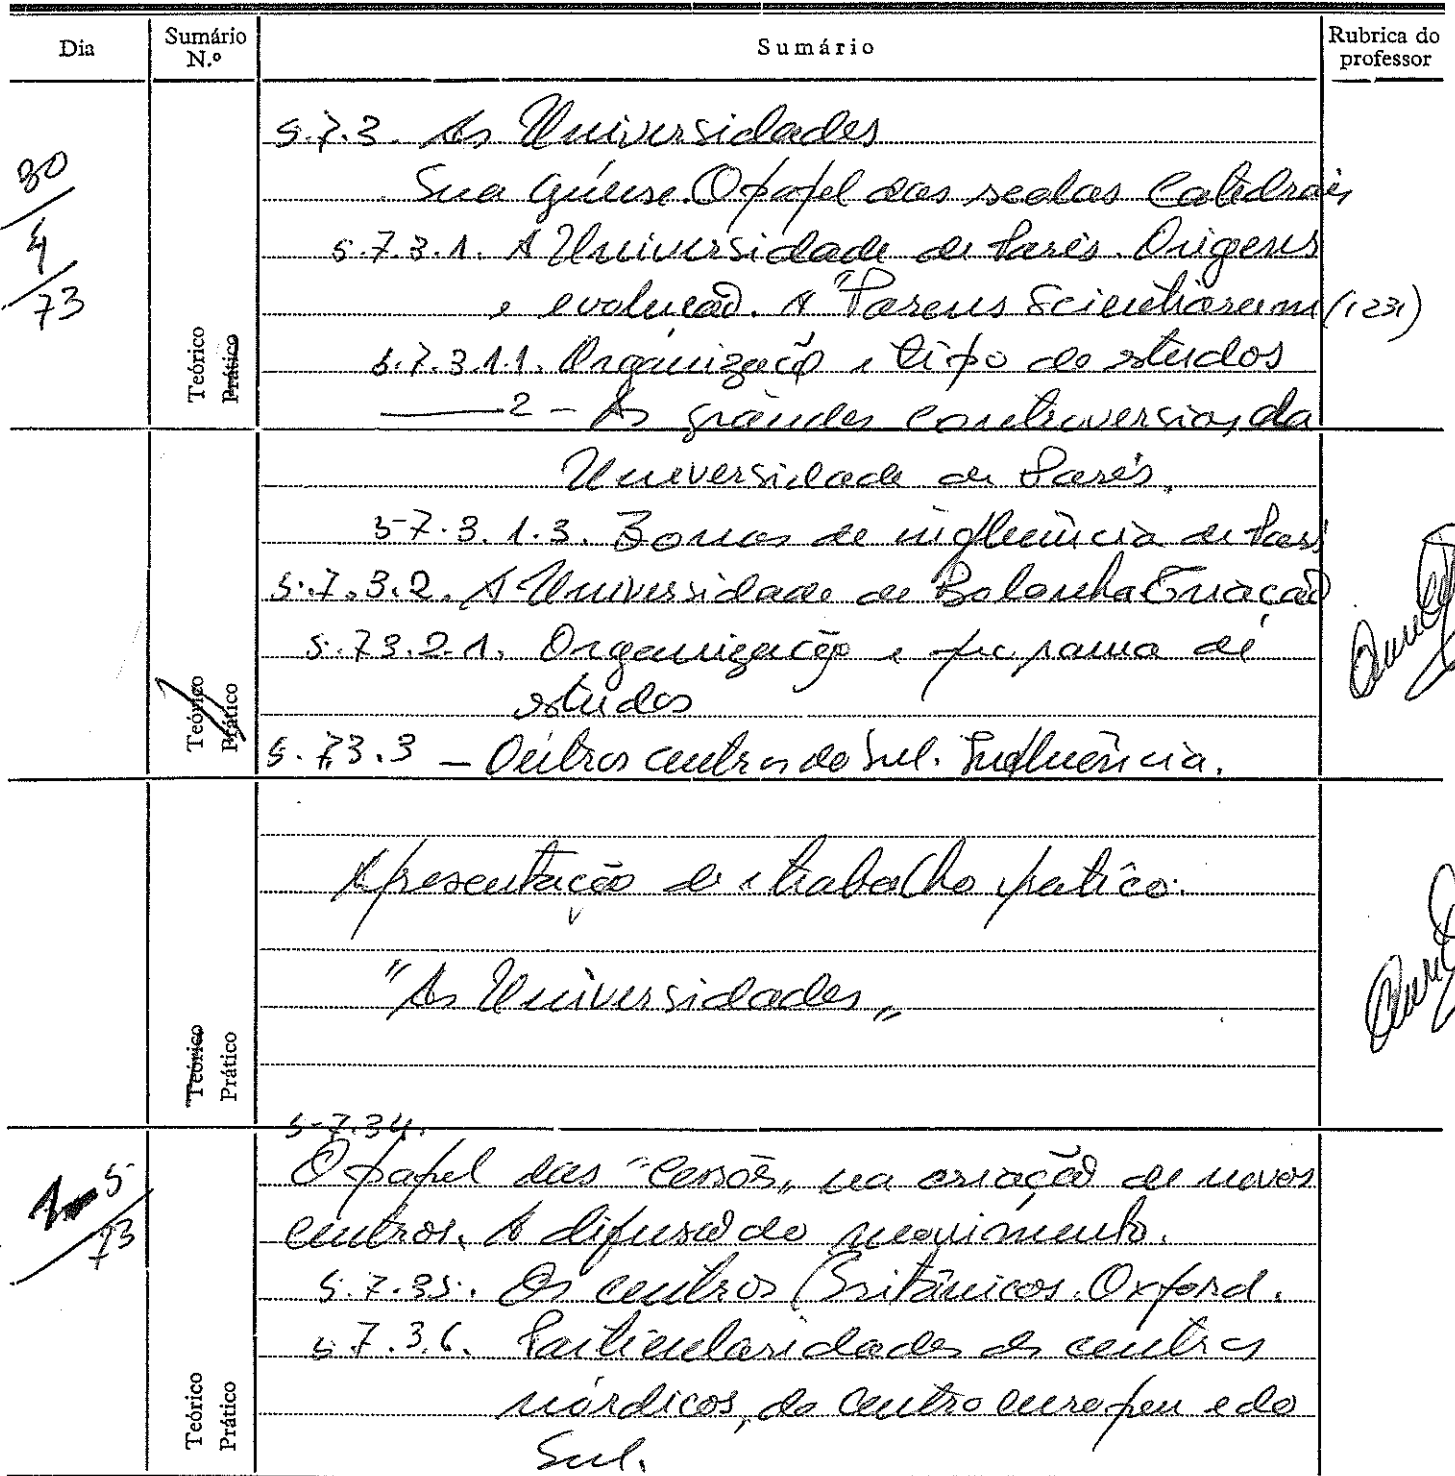 Dia
Sumário N.º
Sumário
Rubrica do professor
30/4/73
5.7.3. As Universidades
Sua génese. O papel das Catedrais
5.7.3.1. A Universidade de Paris. Origens
e evolução. A "Parens Scientiarum (1231)
5.7.3.1.1. Organização e tipo de estudos
Teórico
Prático
2 - As grandes controversias da
Universidade de Paris.
5.7.3.1.3. Zonas de influência de Paris
5.7.3.2. A Universidade de Bolonha Criação
5.73.2.1. Organização e de
estudos
Teórico
Prático
5.73.3 - Outros centros do Sul. Influência.
Apresentação de trabalho patico.
"As Universidades"
Teórico
Prático
5-7.34.
1-5/73
O papel das na criação de novos
centros. A difusão do movimento.
5.7.35. Os centros Britânicos. Oxford.
5.7.3.6. Particularidades os centros
nórdicos, do centro europeu e do
Sul.
Teórico
Prático